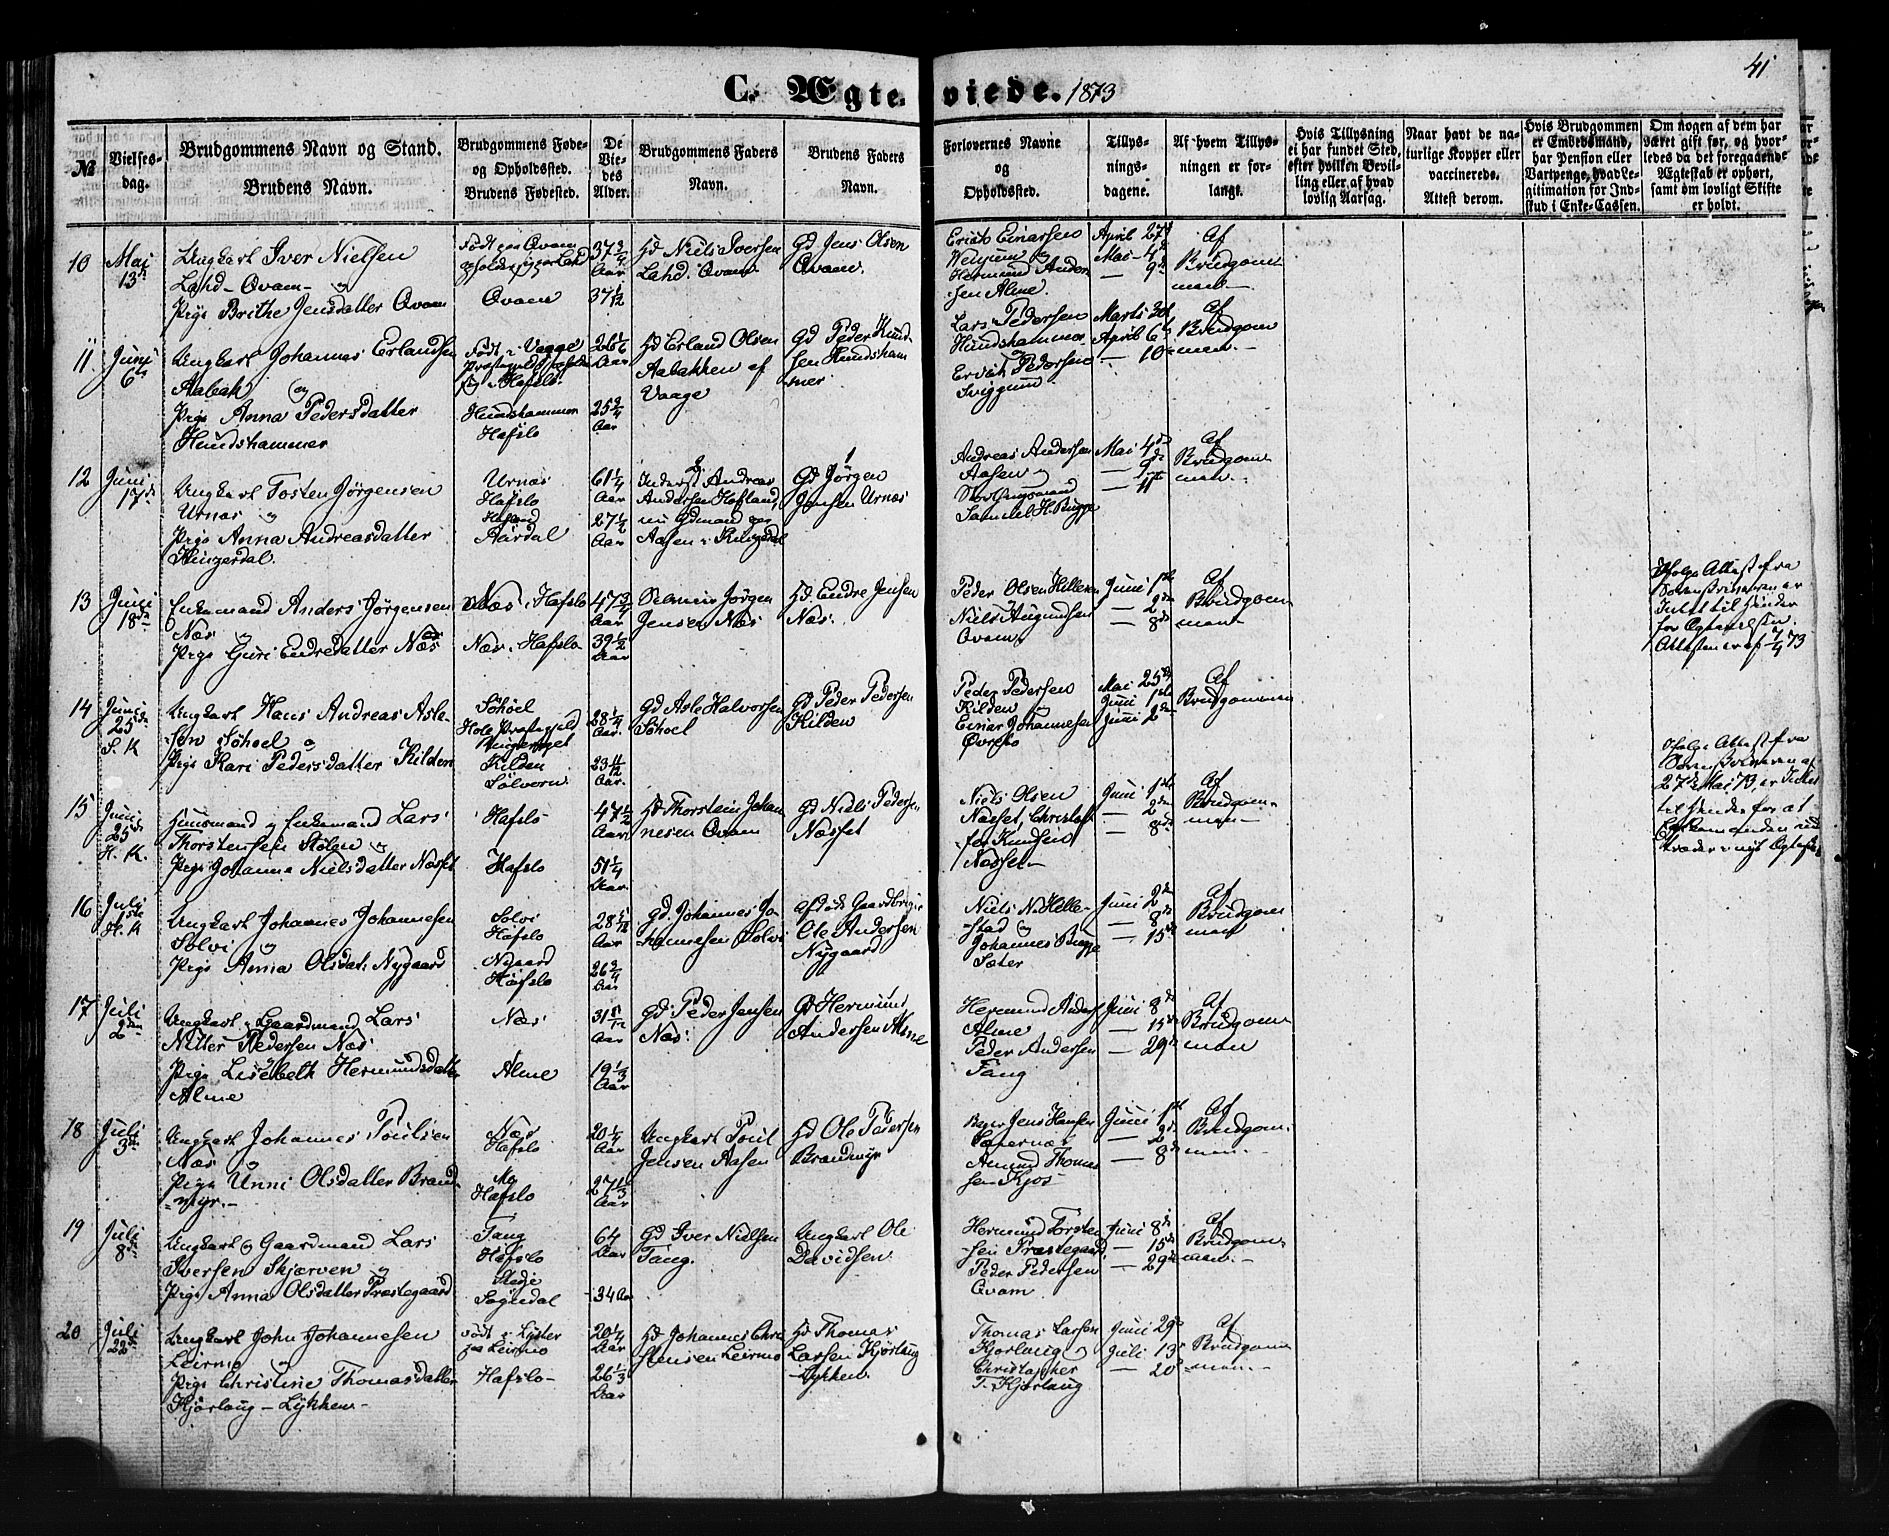 41
C. Ægteviede. 1873
№
Vielsesdag.
Brudgommens Navn og Stand.
Brudens Navn.
Brudgommens Føde-
og Opholdssted.
Brudens Fødested.
De
Vie-
des
Alder.
Brudgommens Faders
Navn.
Brudens Faders
Navn.
Forlovernes Navne
og
Opholdssted.
Tillys-
nings-
dagene.
Af hvem Tillys-
ningen er for-
langt.
Hvis Tillysning
ei har fundet Sted,
efter hvilken Bevil-
ling eller af hvad
lovlig Aarsag.
Naar havt de na-
turlige Kopper eller
vaccinerede.
Attest derom.
Hvis Brudgommen
er Embedsmand,
har Pension eller
Vartpenge, hvad Le-
gitimation for Ind-
skud i Enke-Cassen.
Om nogen af dem har
været gift før, og hvor-
ledes da det foregaaende
Ægteskab er ophørt,
samt om lovligt Skifte
er holdt.
10
Mai
13de
Ungkarl Iver Nielsen
Lahd - Qvam - og
Pige Brithe Jensdatter Qvam
Født paa Qvam
Qvam
37 3/4
Aar
37 1/12
Gd Niels Iversen
Lahd. Qvam
Gd Jens Olsen
Qvam.
Erick Einarsen
Hermund Ander-
sen Alme.
April 27de
Mai 4de
— 9de
Af
Brudgom-
men
11.
Juni
6te
Ungkarl Johannes Erlandsen
Aabak og
Pige Anna Pedersdatter
Hundshammer
Født i Vaage
Præstegjeld
Hafslo.
Hundshammer
Hafslo
26 1/6
Aar
25 3/4
Aar
Gd Erland Olsen
Aabakken af
Vaage
Gd Peder Knud-
sen Hundsham-
mer
Lars Pedersen
Hundshammer
Erick Pedersen
Sviggum
Marts 30
April 6te
— 10
Af
Brudgom
men.
12
Juni
17de
Ungkarl Tosten Jørgensen
Urnæs og
Pige Anna Andreasdatter
Kinzerdal.
Urnæs
Hafslo
Aardal
61 1/4
Aar
27 1/2
Aar
Inderst Andreas
Andersen Hofland,
nu Gdmand paa
Aasen i Kinzedal
Gd Jørgen
Jensen Urnæs
Andreas Andersen
Aasen og
Storthingsmand
Samuel H. Bugge
Mai 4de
— 9de
— 11te
Af
Brudgom
men.
13
Juni
18de
Enkemand Anders Jørgensen
Næs og
Pige Guri Endredatter Næs
Næs i Hafslo
Næs i Hafslo
47 3/4
Aar
39 1/2
Aar
Selveier Jørgen
Jensen Næs
Gd Endre Jensen
Næs.
Peder Olsen Hillesen
Niels Augundsen
Qvam
Juni 1ste
— 2den
— 8de
Af
Brudgom
men
Ifølge Attest fra
Sorenskriveren er
Intet til Hinder
for Ægteskabet.
Attesten er af 7/4 73
14
Juni
25de
S. K
Ungkarl Hans Andreas Asle-
sen Søhoel og
Pige Kari Pedersdatter Kilden
Søhoel
Hole Præstegjeld
Ringeriget
Kilden
Solvorn
28 1/4
Aar.
23 11/12
Aar.
Gd Asle Halvorsen
Søhoel
Gd Peder Pedersen
Kilden
Peder Pedersen
Kilden
Einar Johannesen
Øvrebo
Mai 25de
Juni 1ste
Juni 2den
Af
Brudgommen
15
Juni
25de
H. K.
Huusmand og Enkemand Lars
Thorstensen Stølen og
Pige Johanne Nielsdatter Næset
Hafslo
Hafslo
47 1/2
Aar
51 1/4
Aar
Gd Thorstein Johan-
nesen Qvam
Gd Niels Pedersen
Næsset
Niels Olsen
Næsset, Christof-
fer Knudsen
Næsset
Juni 1ste
— 2den
— 8de
Af
Brudgom-
men
Ifølge Attest fra
Sorenskriveren af
27de Mai 73, er Intet
til Hinder for at
Enkemanden ind
træder i nyt Ægtesk.
16
Juli
1ste
H. K
Ungkarl Johannes Johannesen
Solvi og
Pige Anna Olsdat. Nygaard
Solvi
Hafslo
Nygaard
Hafslo
28 5/12
Aar
26 3/4
Aar
Gd. Johannes Jo-
hannesen Solvi
Ole Andersen
Nygaard
Niels N. Helle-
stad og
Johannes Bugge
Sæter
Juni 2den
— 8de
— 15de
Af
Brudgom
men
17
Juli
2den
Ungkarl og Gaardmand Lars
Nitter Pedersen Næs
og
Pige Lisebeth Hermundsdatter
Alme
Næs
Alme
31 5/12
Aar
19 1/3
Aar
Gd. Peder Jensen
Næs.
Gd Hermund
Andersen Alme
Hermund Anders.
Alme
Peder Andersen
Fang
Juni 8de
— 15de
— 29de
Af
Brudgom-
men
18
Juli
3de
Ungkarl Johannes Poulsen
Næs og
Pige Unni Olsdatter Brand-
myr.
Næs
Hafslo
Mo
Hafslo
20 1/4
Aar
27 1/3
Aar
Ungkarl Poul
Jensen Aasen
Gd Ole Pedersen
Brandmyr
Jens Hansen
Amund Thomas
sen Kjos
Juni 1ste
— 2d.
— 8de
Af
Brudgom-
men.
19
Juli
8de
Ungkarl og Gaardmand Lars
Iversen Skjærven og
Pige Anna Olsdatter Præstegaard
Fang
Hafslo
Stedje
Sogndal
64
Aar
34 Aar
Gd Iver Nielsen
Fang.
Ungkarl Ole
Davidsen.
Hermund Torsten
sen Præstegaard.
Peder Pedersen
Qvam
Juni 8de
— 15de
— 29de
Af
Brudgom-
men.
20
Juli
22de
Ungkarl John Johannesen
Leirmo og
Pige Christine Thomasdatter
Kjørlaug - Lykken -
Født i Lyster
paa Leirmo
Hafslo -
20 1/4
Aar
26 1/3
Aar
Gd Johannes Chri
stensen Leirmo
Gd Thomas
Larsen Kjørlaug
- Lykken.
Thomas Larsen
Kjørlaug og
Christopher
T. Kjørlaug
Juni 29de
Juli 13de
— 20de
Af
Brudgom
men.